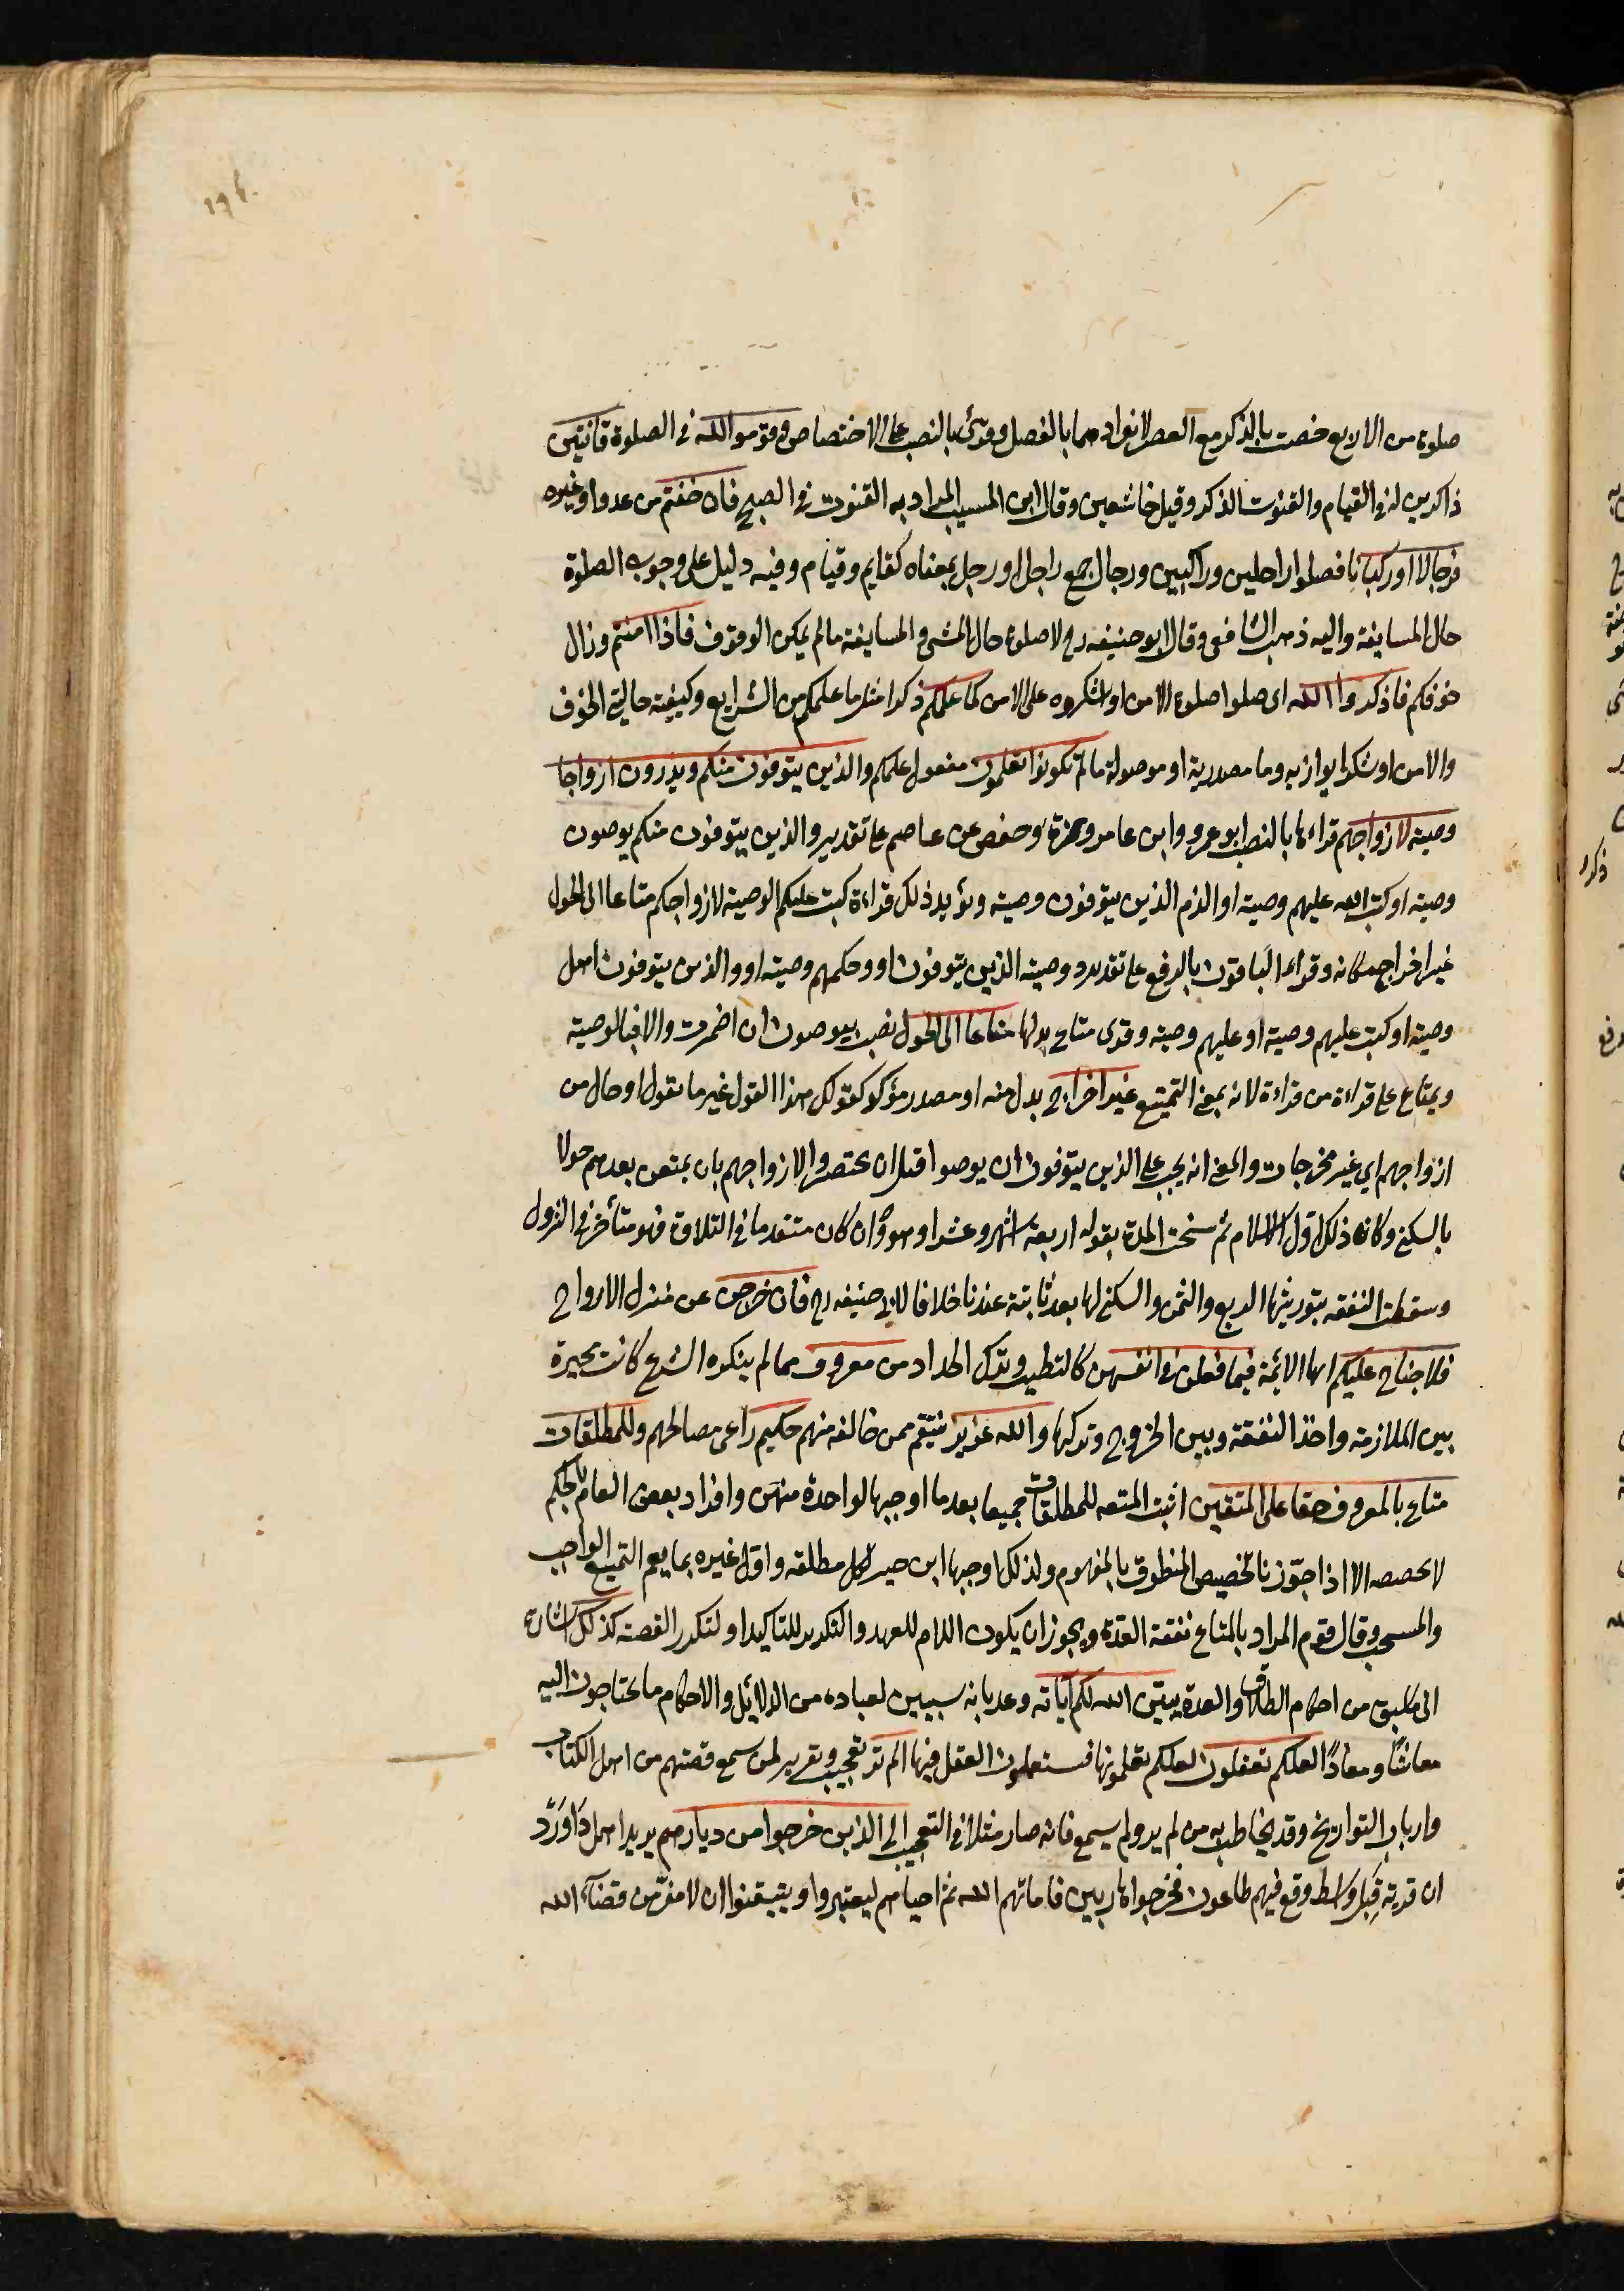 صلوة من الاربع خصت بالذكر مع العصر لانفرادهما بالفضل وقرئ بالنصب على الاختصاص وقوموا لله في الصلوة قانتين
ذاكرين له في القيام والقنوت الذكر وقيل خاشعين وقال ابن المسيب المراد به القنوت في الصبح فان خفتم من عدو او غيره
فرجالا او ركبانا فصلوا راجلين وراكبين ورجال جمع راجل او رجل بمعناه كقايم وقيام وفيه دليل على وجوب الصلوة
حال المسايفة واليه ذهب الشافعي وقال ابو حنيفه رح لا صلوة حال المشي والمسايفة مالم يمكن الوقوف فاذا امنتم وزال
خوفكم فاذكروا الله اى صلوا صلوة الامن او اشكروه على الامن كما علمكم ذكرا مثل ما علمكم من الشرايع وكيفية حالتي الخوف
والامن او شكرا يوازيه وما مصدرية او موصولة مالم تكونوا تعلمون مفعول علمكم والذين يتوفون منكم ويذرون ازواجا
وصية لازواجهم قراءها بالنصب ابو عمرو وابن عامر وحمزة وحفص عن عاصم على تقدير والذين يتوفون منكم يوصون
وصية او كتب الله عليهم وصية او الزم الذين يتوفون وصية ويؤيد ذلك قراءة كتب عليكم الوصية لازواجكم متاعا الى الحول
غير اخراج مكانه وقراء الباقون بالرفع على تقدير ووصية الذين يتوفون او وحكمهم وصية او والذين يتوفون اهل
وصية او كتبت عليهم وصية او عليهم وصية وقرى متاع بدلها متاعا الى الحول نصب بيوصون ان اضمرت والا فبالوصية
وبمتاع على قراءة من قراءه لانه بمعنى التمتيع غير اخراج بدل منه او مصدر مؤكد كقولك هذا القول غير ما تقول او حال من
ازواجهم اي غير مخرجات والمعنى انه يجب على الذين يتوفون ان يوصوا قبل ان يحتضروا لازواجهم بان يمتعن بعدهم حولا
بالسكنى وكان ذلك اول الاسلام ثم نسخت المدة بقوله اربعة اشهر وعشرا وهو وان كان متقدما في التلاوة فهو متأخر في النزول
وسقطت النفقه بتوريثها الربع والثمن والسكنى لها بعد ثابتة عندنا خلافا لابي حنيفه رح فان خرجن عن منزل الازواج
فلا جناح عليكم ايها الائمة فيما فعلن في انفسهن كالتطيب وترك الحداد من معروف مما لم ينكره الشرع كانت مخيرة
بين الملازمة واخذ النفقة وبين الخروج وتركها والله عزيز ينتقم ممن خالفه منهم حكيم راعى مصالحهم وللمطلقات
متاع بالمعروف حقا على المتقين اثبت المتعه للمطلقات جميعا بعد ما اوجبها لواحدة منهن وافراد بعض العام بالحكم
لا يخصصه الا اذا جوّزنا تخصيص المنطوق بالمفهوم ولذلك اوجبها ابن جبير لكل مطلقه واول غيره بما يعم التمتيع الواجب
والمستحب وقال قوم المراد بالمتاع نفقة العدة ويجوز ان يكون اللام للعهد والتكرير للتاكيد او لتكرر القصة كذلك اشارة
الى ما سبق من احكام الطلاق والعدة يبيّن الله لكم آياته وعد بانه سيبين لعباده من الدلائل والاحكام ما يحتاجون اليه
معاشًا ومعادًا لعلكم تعقلون لعلكم تفهمونها فتستعملون العقل فيها الم تر تعجيب وتقرير لمن سمع قصتهم من اهل الكتاب
وارباب التواريخ وقد يخاطب به من لم ير ولم يسمع فانه صار مثلا في التعجيب الى الذين خرجوا من ديارهم يريد اهل دَاوَرْدَ
ان قرية قِبَل واسط وقع فيهم طاعون فخرجوا هاربين فاماتهم الله ثم احياهم ليعتبروا ويتيقنوا ان لا مفرّ من قضآء الله